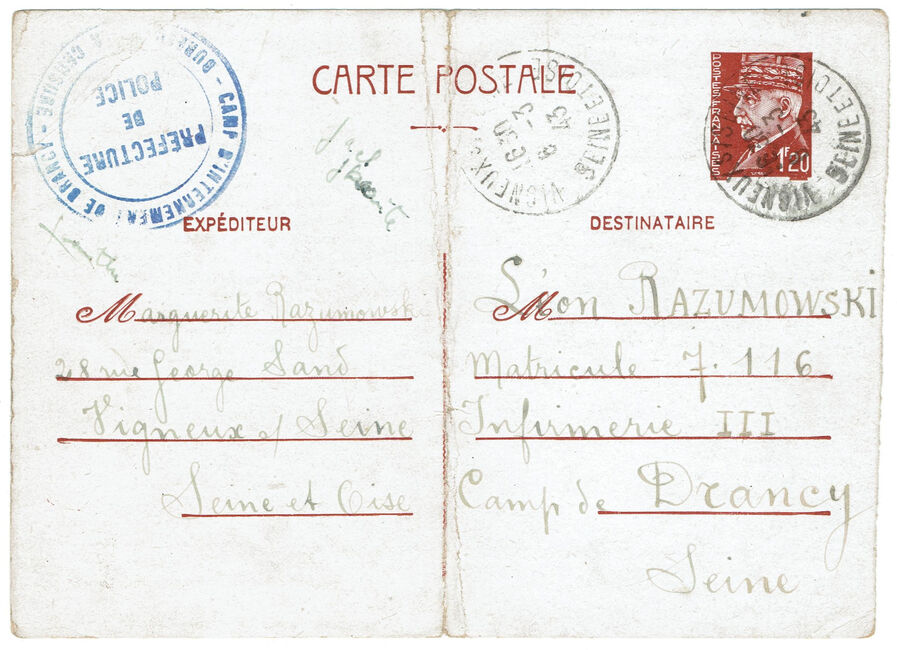 CARTE POSTALE
CAMP D'INTERNEMENT DE DRANCY - BUREAU
CENSURE
PREFECTURE
DE
POLICE
VIGNEUX S
1630
8 - 3
43
SEINE ET OISE
POSTES FRANÇAISES
1F20
VIGNEUX
3
43
SEINE ET OI
EXPÉDITEUR
Marguerite Razumowski
28 rue George Sand
Vigneux s/ Seine
Seine et Oise
DESTINATAIRE
M Léon RAZUMOWSKI
Matricule 7.116
Infirmerie III
Camp de Drancy
Seine